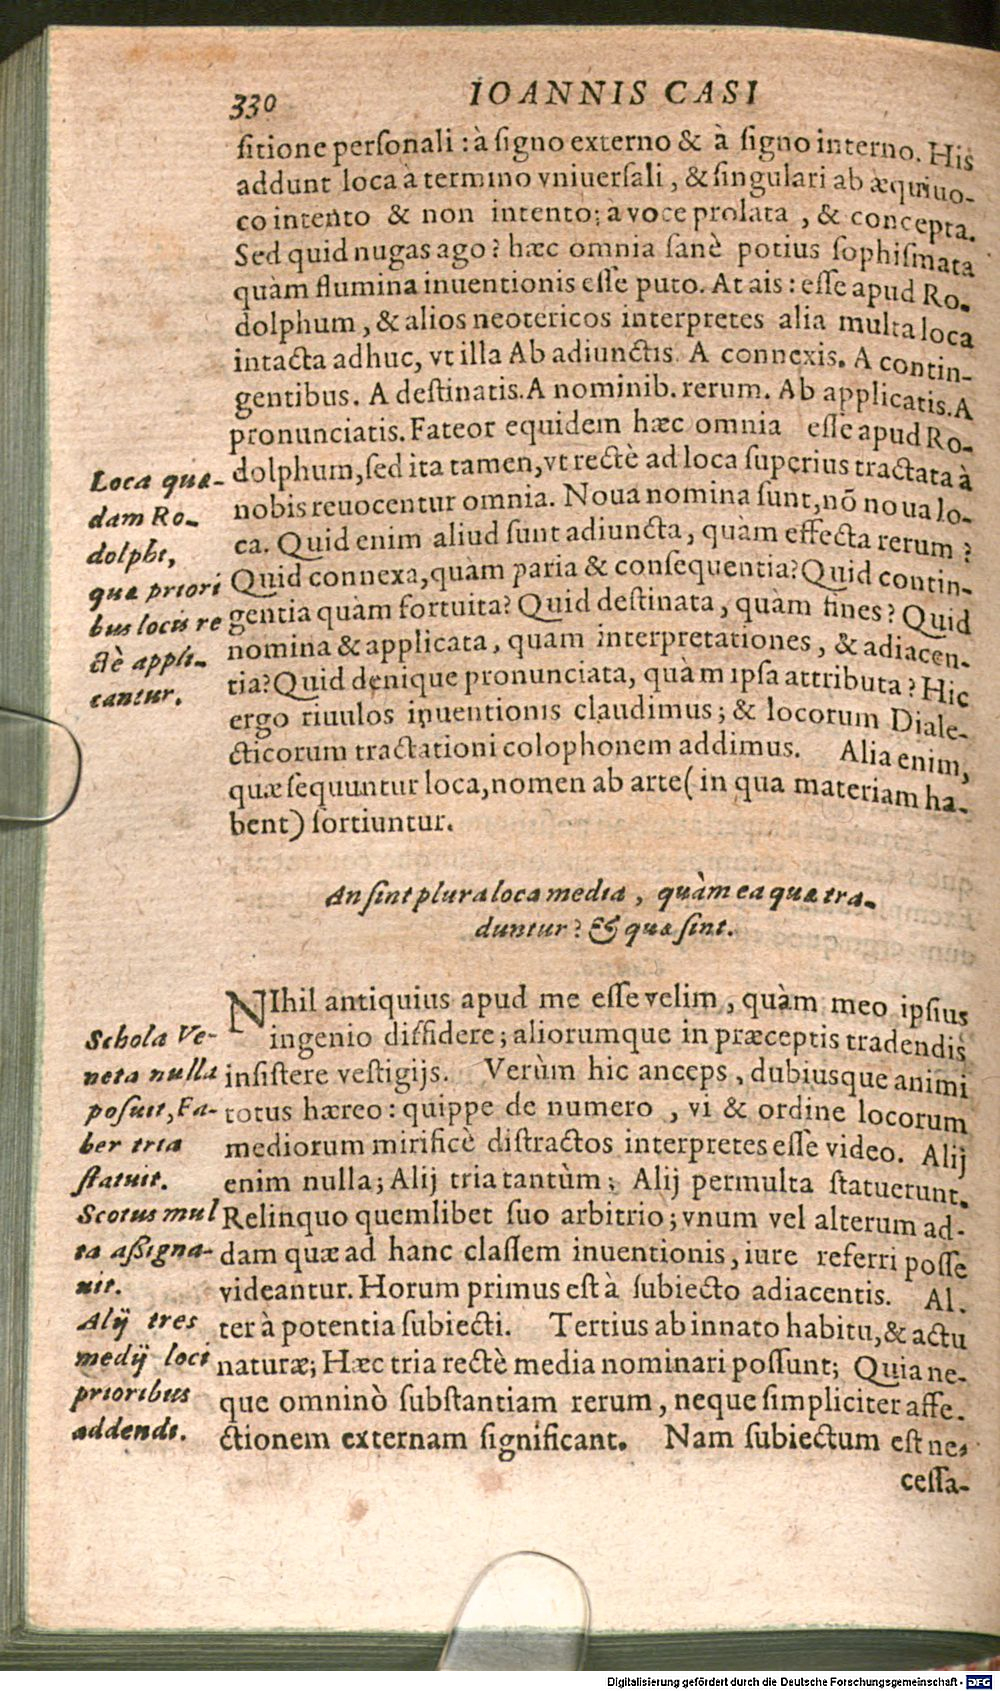 330 IOANNIS CASI
ſitione perſonali : à ſigno externo & à ſigno interno. His
addunt loca à termino vniuerſali, & ſingulari ab æquiuo-
co intento & non intento; à voce prolata, & concepta.
Sed quid nugas ago? hæc omnia ſanè potius ſophiſmata
quàm flumina inuentionis eſſe puto. At ais : eſſe apud Ro-
dolphum, & alios neotericos interpretes alia multa loca
intacta adhuc, vt illa Ab adiunctis. A connexis. A contin-
gentibus. A deſtinatis. A nominib. rerum. Ab applicatis. A
pronunciatis. Fateor equidem hæc omnia eſſe apud Ro-
dolphum, ſed ita tamen, vt rectè ad loca ſuperius tractata à
nobis reuocentur omnia. Noua nomina ſunt, nõ noua lo-
ca. Quid enim aliud ſunt adiuncta, quàm effecta rerum?
Quid connexa, quàm paria & conſequentia? Quid contin-
gentia quàm fortuita? Quid deſtinata, quàm fines? Quid
nomina & applicata, quam interpretationes, & adiacen-
tia? Quid denique pronunciata, quàm ipſa attributa? Hic
ergo riuulos inuentionis claudimus; & locorum Diale-
cticorum tractationi colophonem addimus. Alia enim,
quæ ſequuntur loca, nomen ab arte (in qua materiam ha-
bent) ſortiuntur.
Loca quæ-
dam Ro-
dolphi,
quæ priori
bus locis re
ctè appli-
cantur.
An ſint plura loca media, quàm ea quæ tra-
duntur? & quæ ſint.
NIhil antiquius apud me eſſe velim, quàm meo ipſius
ingenio diffidere; aliorumque in præceptis tradendis
inſiſtere veſtigijs. Verùm hic anceps, dubiusque animi
totus hæreo : quippe de numero, vi & ordine locorum
mediorum mirificè diſtractos interpretes eſſe video. Alij
enim nulla; Alij tria tantùm; Alij permulta ſtatuerunt.
Relinquo quemlibet ſuo arbitrio; vnum vel alterum ad-
dam quæ ad hanc claſſem inuentionis, iure referri poſſe
videantur. Horum primus eſt à ſubiecto adiacentis. Al-
ter à potentia ſubiecti. Tertius ab innato habitu, & actu
naturæ; Hæc tria rectè media nominari poſſunt; Quia ne-
que omninò ſubſtantiam rerum, neque ſimpliciter affe-
ctionem externam ſignificant. Nam ſubiectum eſt ne-
ceſſa-
Schola Ve-
neta nulla
poſuit, Fa-
ber tria
ſtatuit.
Scotus mul
ta aßigna-
uit.
Alij tres
medij loci
prioribus
addendi.
Digitalisierung gefördert durch die Deutsche Forschungsgemeinschaft - DFG